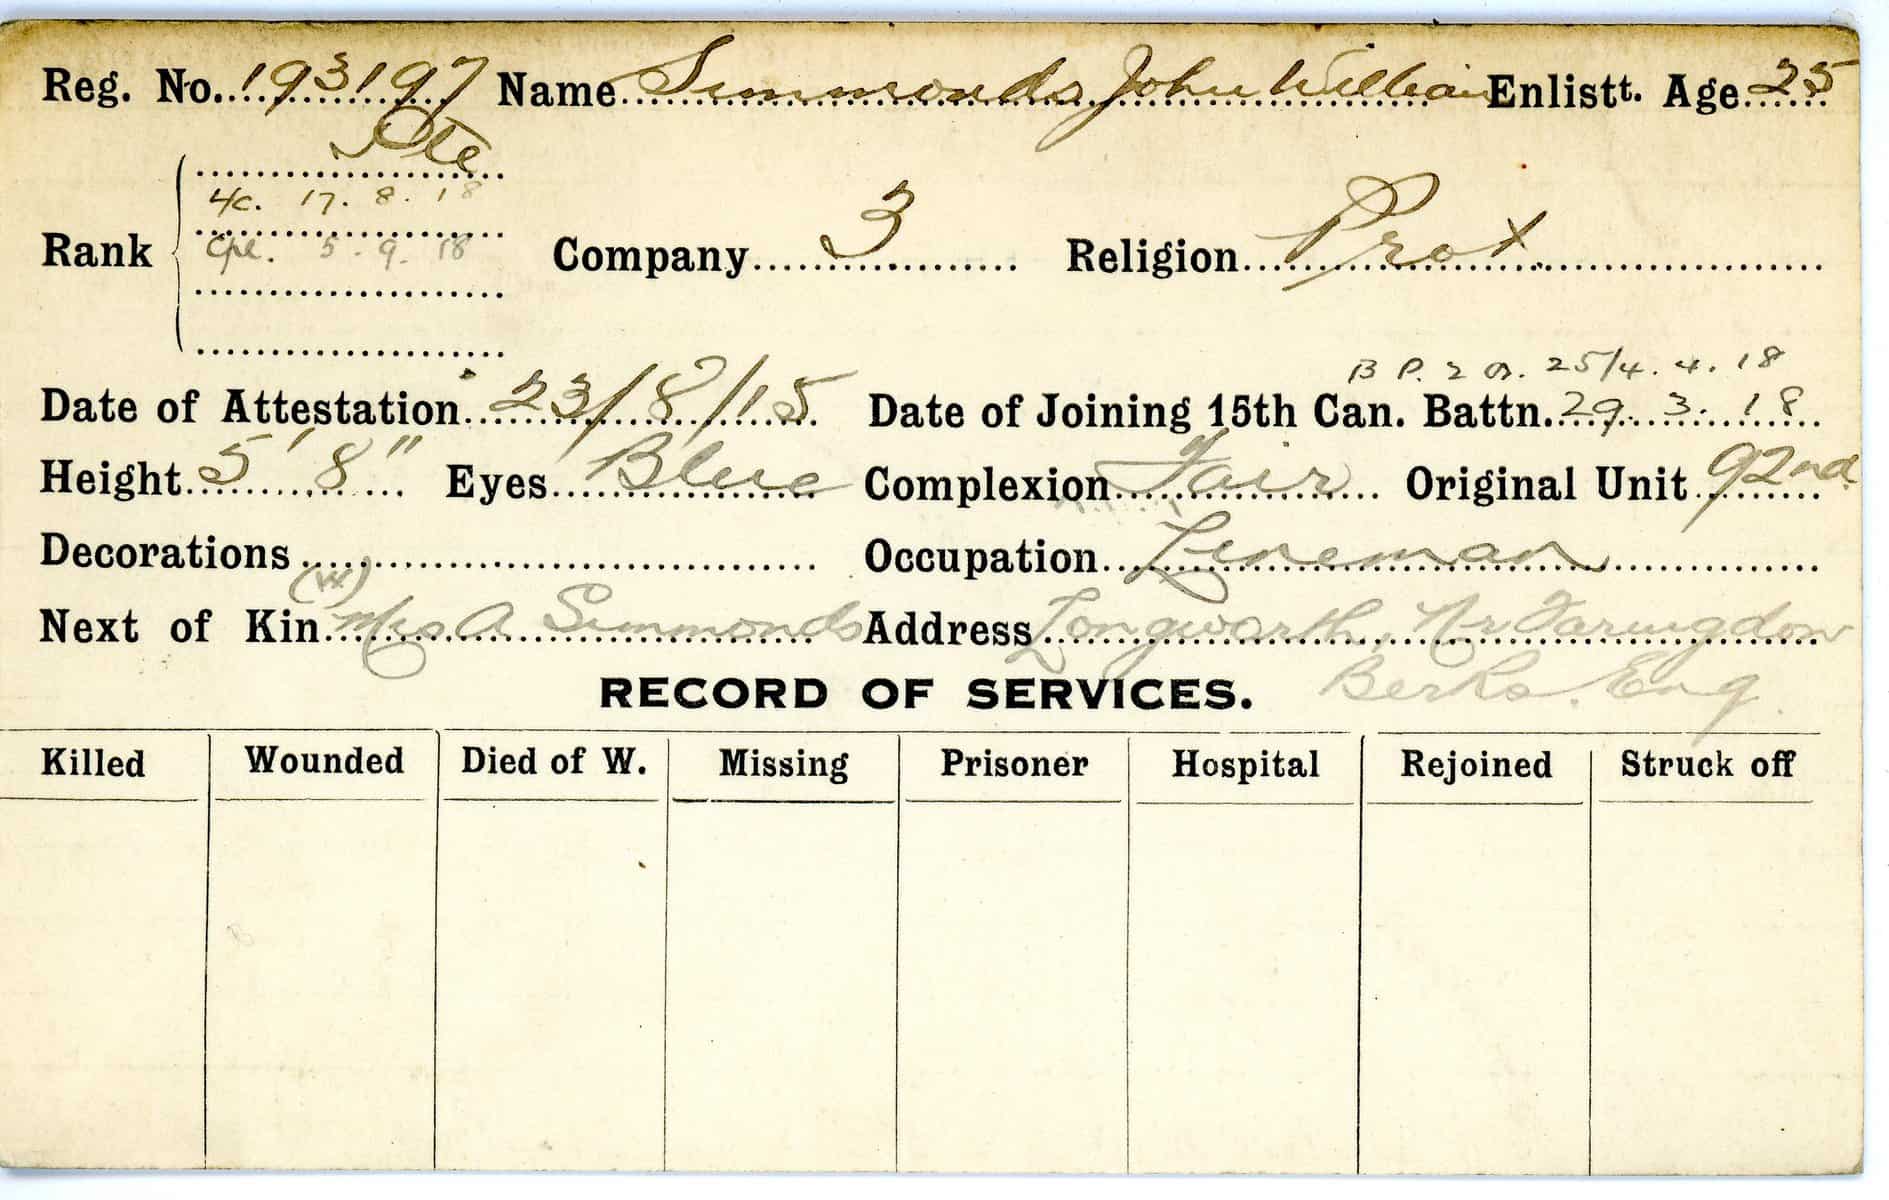 Reg. No. 193197 Name Simmonds John William Enlistt. Age 25
Pte
L/c. 17. 8. 18
Rank Cpl. 5. 9. 18 Company 3 Religion Prot.
B P. 2 O. 25/4. 4. 18
Date of Attestation 23/8/15 Date of Joining 15th Can. Battn. 29. 3. 18
Height 5' 8" Eyes Blue Complexion Fair Original Unit 92nd
Decorations Occupation Lineman
(W)
Next of Kin Mrs A Simmonds Address Longworth, Nr Faringdon
RECORD OF SERVICES. Berks. Eng.
Killed Wounded Died of W. Missing Prisoner Hospital Rejoined Struck off